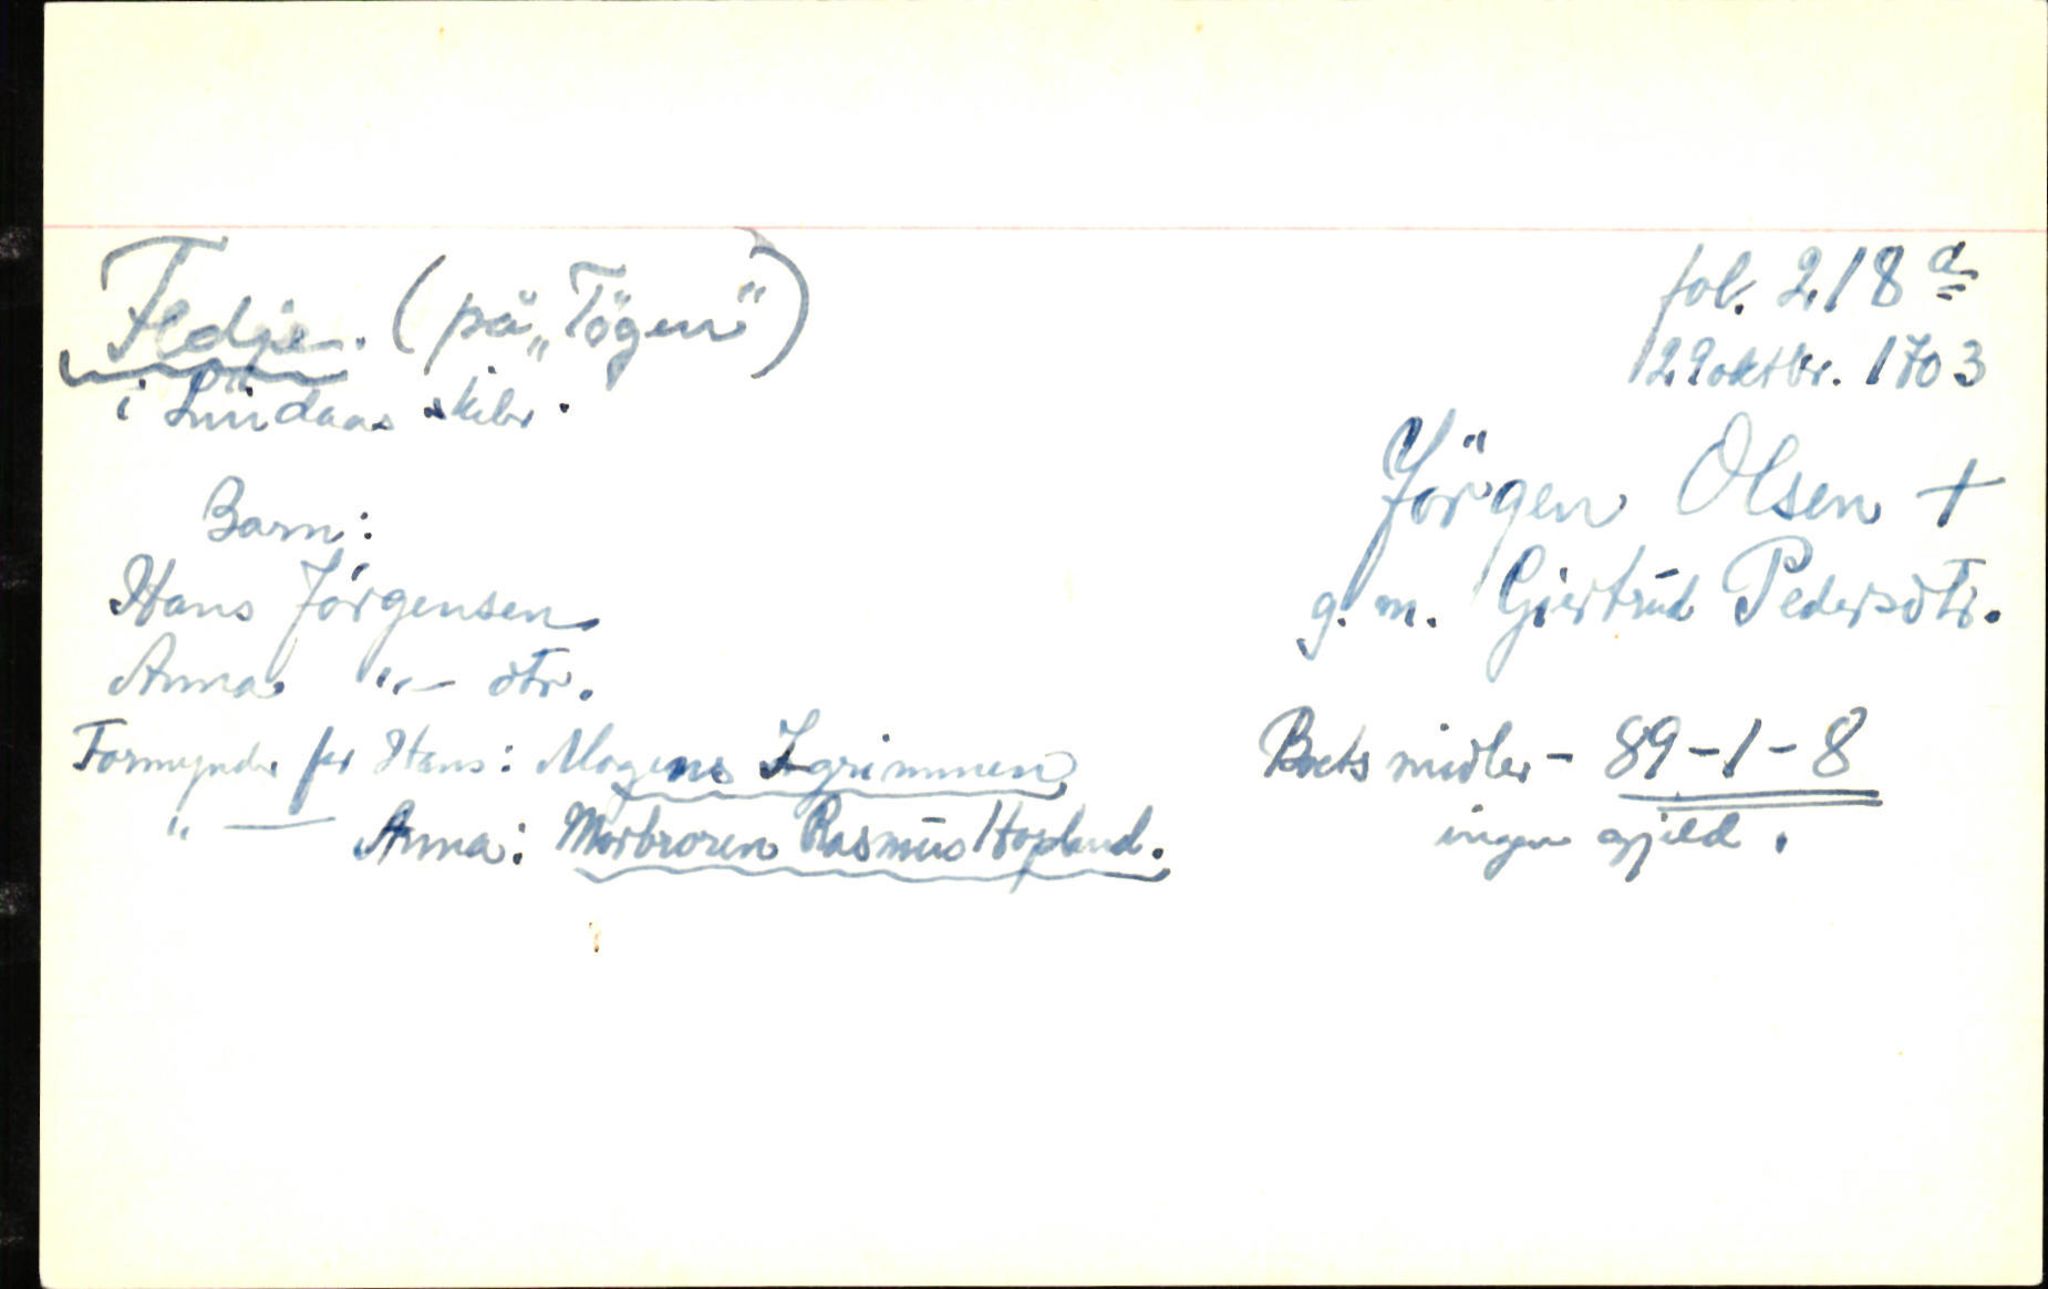 Fedje. (på „Tögen")
i Lindaas skibr.
fol. 218 a
29 oktbr. 1703
Jörgen Olsen +
g. m. Gjertrud Pedersdtr.
Barn:
Hans Jörgensen
Anna "— dtr.
Formynder for Hans: Mogens
"— Anna: Morbroren Rasmus Hopland.
Boets midler - 89-1-8
ingen gjeld.